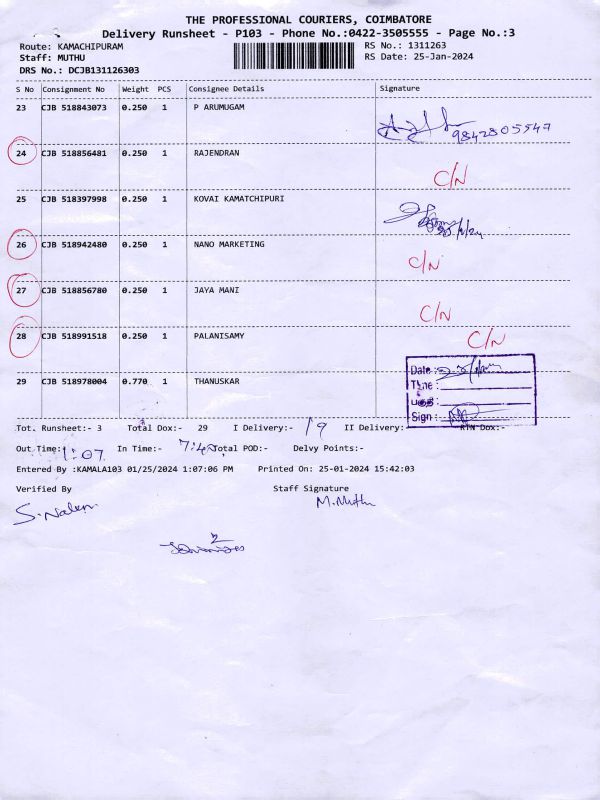 THE PROFESSIONAL COURIERS, COIMBATORE
Delivery Runsheet - P103 - Phone No.:0422-3505555 - Page No.:3
Route: KAMACHIPURAM RS No.: 1311263
Staff: MUTHU RS Date: 25-Jan-2024
DRS No.: DCJB131126303
S No Consignment No Weight PCS Consignee Details Signature
23 CJB 518843073 0.250 1 P ARUMUGAM
9842805547
24 CJB 518856481 0.250 1 RAJENDRAN
C/N
25 CJB 518397998 0.250 1 KOVAI KAMATCHIPURI
26 CJB 518942480 0.250 1 NANO MARKETING
C/N
27 CJB 518856780 0.250 1 JAYA MANI
C/N
28 CJB 518991518 0.250 1 PALANISAMY C/N
Date:
Time:
29 CJB 518978004 0.770 1 THANUSKAR
Sign:
Tot. Runsheet:- 3 Total Dox:- 29 I Delivery:- 19 II Delivery:- RTN Dox:-
Out Time: 1:07 In Time:- Total POD:- Delvy Points:-
Entered By :KAMALA103 01/25/2024 1:07:06 PM Printed On: 25-01-2024 15:42:03
Verified By Staff Signature
S. Nalen M. Muthu